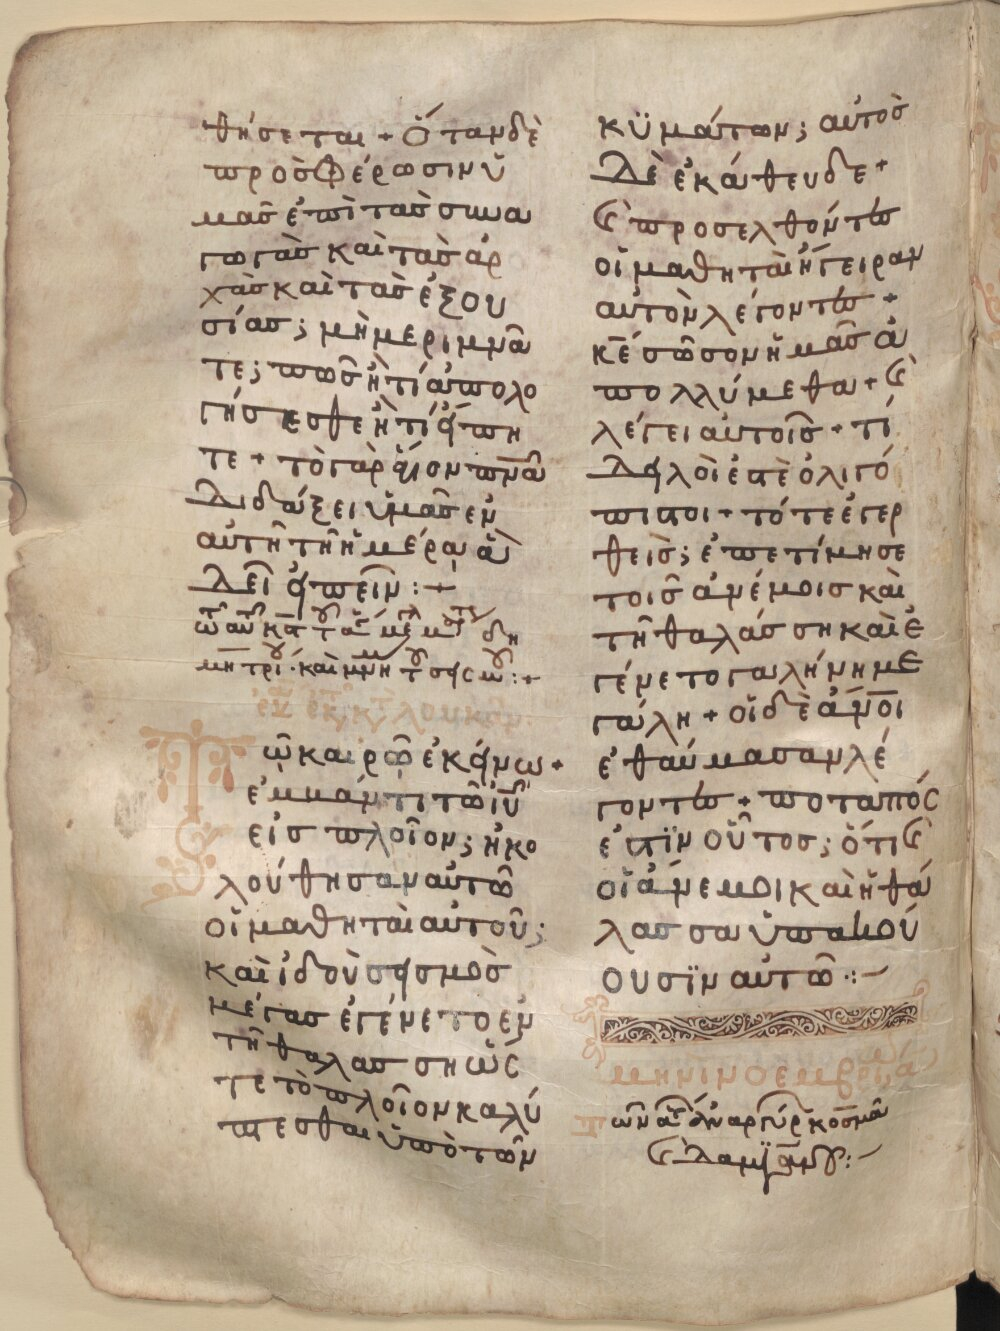 θήσεται + Ὅταν δὲ
προσφέρωσιν ὑ
μᾶς ἐπὶ τὰς συνα
γωγὰς καὶ τὰς ἀρ
χὰς καὶ τὰς ἐξου
σίας; μὴ μεριμνᾶ
τε; πῶς ἢ τί ἀπολο
γήσησθε ἢ τί εἴπη
τε + τὸ γὰρ ἅγιον πνᾶ
διδάξει ὑμᾶς ἐν
αὐτῇ τῇ ἡμέρᾳ ἃ
δεῖ εἰπεῖν : +
ἐκ τοῦ κατὰ Λουκᾶν
Τῶ καιρῶ ἐκείνω +
ἐμβάντι τῶ ιῦ
εἰς πλοῖον; ἠκο
λούθησαν αὐτῶ
οἱ μαθηταὶ αὐτοῦ;
καὶ ἰδοὺ σεισμὸς
μέγας ἐγένετο ἐν
τῇ θαλάσση ὥς
τε τὸ πλοῖον καλύ
πτεσθαι ὑπὸ τῶν
κϋμάτων; αὐτὸς
δὲ ἐκάθευδε +
Ϛ προσελθόντες
οἱ μαθηταὶ ἤγειραν
αὐτὸν λέγοντες +
κ̅ε̅ σῶσον ἡμᾶς ἀ
πολλύμεθα + Ϛ
λέγει αὐτοῖς + τί
δειλοί ἐστὲ ὀλιγό
πιστοι + τότε ἐγερ
θεὶς; ἐπετίμησε
τοῖς ἀνέμοις καὶ
τῇ θαλάσση καὶ ἐ
γένετο γαλήνη με
γάλη + οἱ δὲ α̅ν̅οι
ἐθαύμασαν λέ
γοντες + ποταπός
ἐστϊν οὗτος; ὅτι Ϛ
οἱ ἄνεμοι καὶ ἡ θά
λασσα ὑπακού
ουσϊν αὐτῶ :–
μηνὶ νοεμβρίω α
Τῶν ἁγίων ἀναργύρ κοσμᾶ
Ϛ δαμϊανοῦ :–